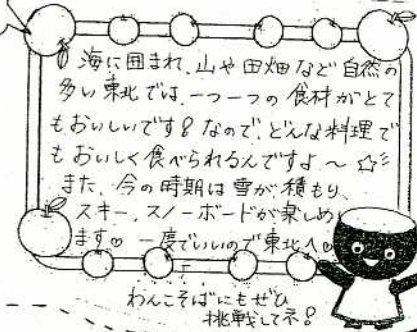 海に囲まれ、山や田畑など自然の
多い東北では、一つ一つの食材がとて
もおいしいです！なので、どんな料理で
もおいしく食べられるんですよ〜☆
また、今の時期は雪が積もり、
スキー、スノーボードが楽しめ
ます♡一度でいいので東北へ♡
わんこそばにもぜひ
挑戦してネ！